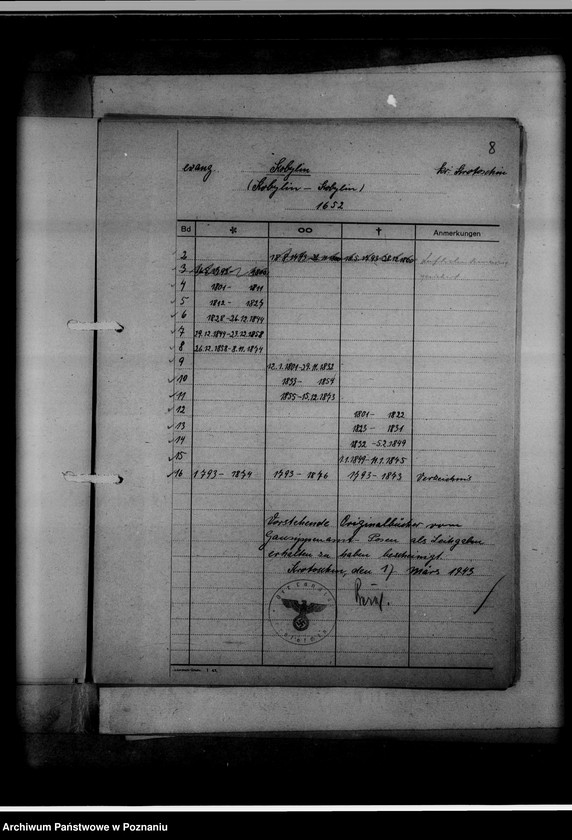 8
evang. Kobylin Kr. Krotoschin
(Kobylin – Kobylin)
1652
Bd * ∞ † Anmerkungen
2
3
4 1801 – 1811
5 1812 – 1827
6 1828 – 26.12.1844
7 29.12.1844 – 23.12.1858
8 26.12.1858 – 8.11.1874
9 12.1.1801 – 29.11.1832
10 1833 – 1854
11 1855 – 15.12.1873
12 1801 – 1822
13 1823 – 1831
14 1832 – 5.2.1849
15 1.1.1849 – 11.1.1875
16 1793 – 1874 1793 – 1876 1793 – 1873 Verzeichnis
Vorstehende Originalbücher vom
Gausippenamt – Posen als Leihgaben
erhalten zu haben bescheinigt.
Krotoschin, den 17. März 1943
Der Landrat
Archiwum Państwowe w Poznaniu